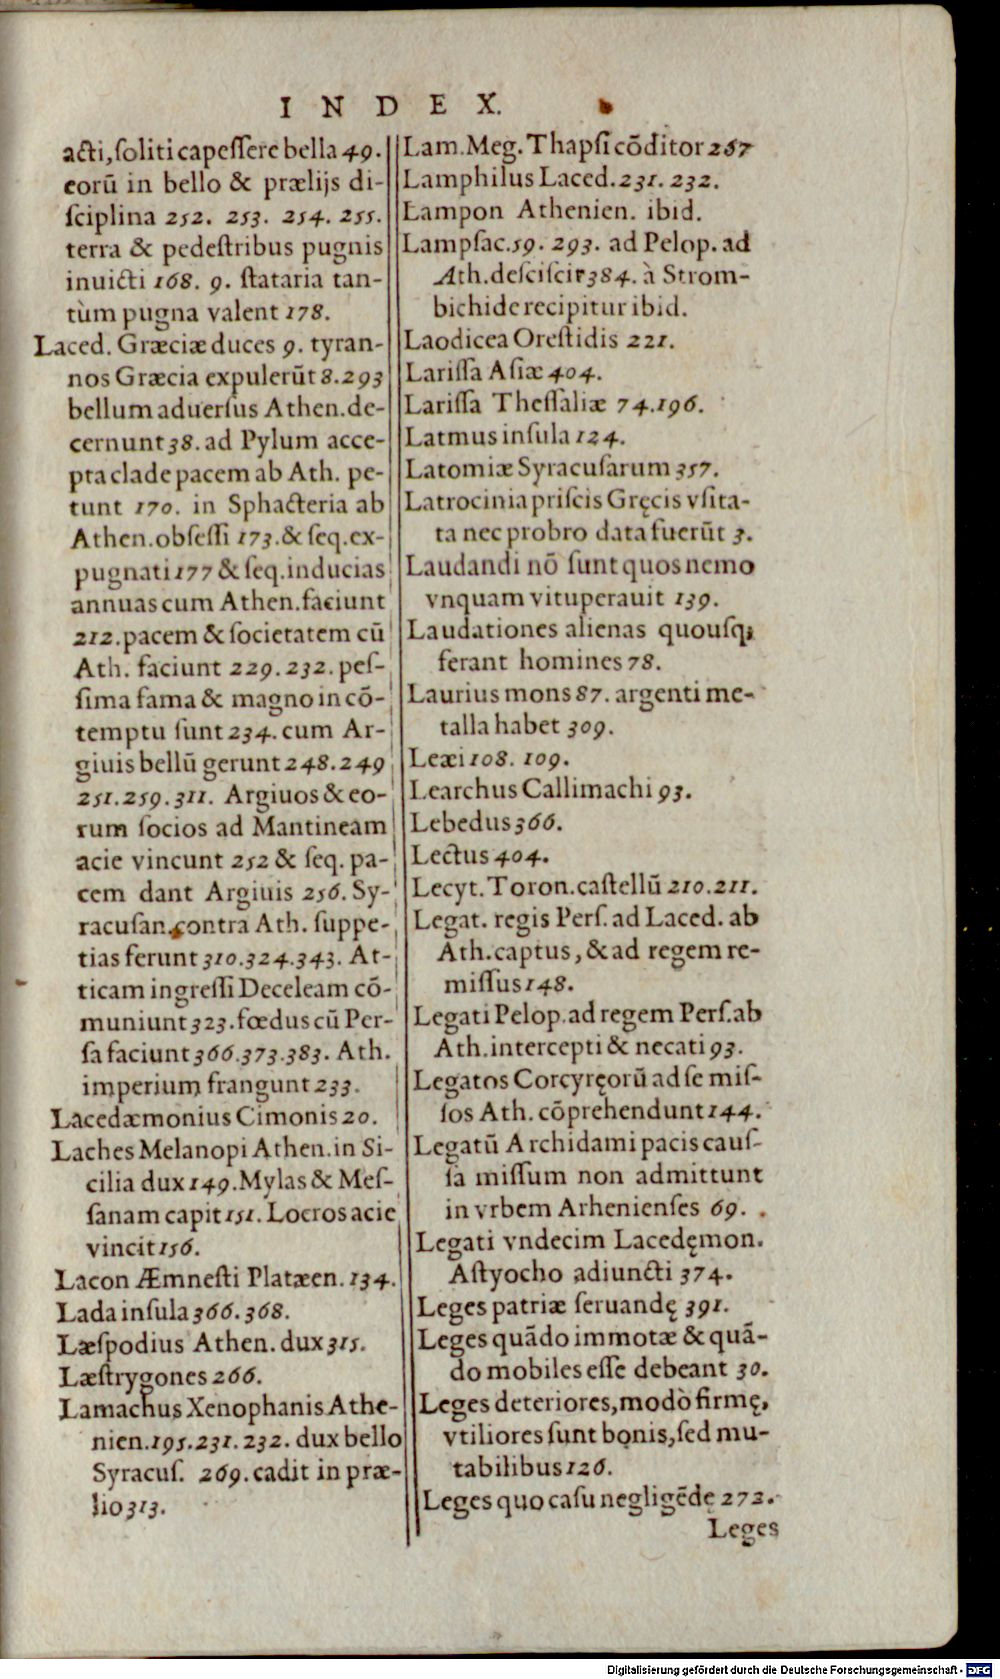 INDEX.
acti, ſoliti capeſſere bella 49.
eorū in bello & prælijs di-
ſciplina 252. 253. 254. 255.
terra & pedeſtribus pugnis
inuicti 168. 9. ſtataria tan-
tùm pugna valent 178.
Laced. Græciæ duces 9. tyran-
nos Græcia expulerūt 8. 293
bellum aduerſus Athen. de-
cernunt 38. ad Pylum acce-
pta clade pacem ab Ath. pe-
tunt 170. in Sphacteria ab
Athen. obſeſſi 173. & ſeq. ex-
pugnati 177 & ſeq. inducias
annuas cum Athen. faciunt
212. pacem & ſocietatem cū
Ath. faciunt 229. 232. peſ-
ſima fama & magno in cō-
temptu ſunt 234. cum Ar-
giuis bellū gerunt 248. 249
251. 259. 311. Argiuos & eo-
rum ſocios ad Mantineam
acie vincunt 252 & ſeq. pa-
cem dant Argiuis 256. Sy-
racuſan. contra Ath. ſuppe-
tias ferunt 310. 324. 343. At-
ticam ingreſſi Deceleam cō-
muniunt 323. fœdus cū Per-
ſa faciunt 366. 373. 383. Ath.
imperium frangunt 233.
Lacedæmonius Cimonis 20.
Laches Melanopi Athen. in Si-
cilia dux 149. Mylas & Meſ-
ſanam capit 151. Locros acie
vincit 156.
Lacon Æmneſti Platæen. 134.
Lada inſula 366. 368.
Læſpodius Athen. dux 315.
Læſtrygones 266.
Lamachus Xenophanis Athe-
nien. 195. 231. 232. dux bello
Syracuſ. 269. cadit in præ-
lio 313.
Lam. Meg. Thapſi cōditor 267
Lamphilus Laced. 231. 232.
Lampon Athenien. ibid.
Lampſac. 59. 293. ad Pelop. ad
Ath. deſciſcit 384. à Strom-
bichide recipitur ibid.
Laodicea Oreſtidis 221.
Lariſſa Aſiæ 404.
Lariſſa Theſſaliæ 74. 196.
Latmus inſula 124.
Latomiæ Syracuſarum 357.
Latrocinia priſcis Gręcis vſita-
ta nec probro data fuerūt 3.
Laudandi nō ſunt quos nemo
vnquam vituperauit 139.
Laudationes alienas quouſq;
ferant homines 78.
Laurius mons 87. argenti me-
talla habet 309.
Leæi 108. 109.
Learchus Callimachi 93.
Lebedus 366.
Lectus 404.
Lecyt. Toron. caſtellū 210. 211.
Legat. regis Perſ. ad Laced. ab
Ath. captus, & ad regem re-
miſſus 148.
Legati Pelop. ad regem Perſ. ab
Ath. intercepti & necati 93.
Legatos Corcyręorū ad ſe miſ-
ſos Ath. cōprehendunt 144.
Legatū Archidami pacis cauſ-
ſa miſſum non admittunt
in vrbem Arhenienſes 69.
Legati vndecim Lacedęmon.
Aſtyocho adiuncti 374.
Leges patriæ ſeruandę 391.
Leges quādo immotæ & quā-
do mobiles eſſe debeant 30.
Leges deteriores, modò firmę,
vtiliores ſunt bonis, ſed mu-
tabilibus 126.
Leges quo caſu negligēdę 272.
Leges
Digitalisierung gefördert durch die Deutsche Forschungsgemeinschaft - DFG